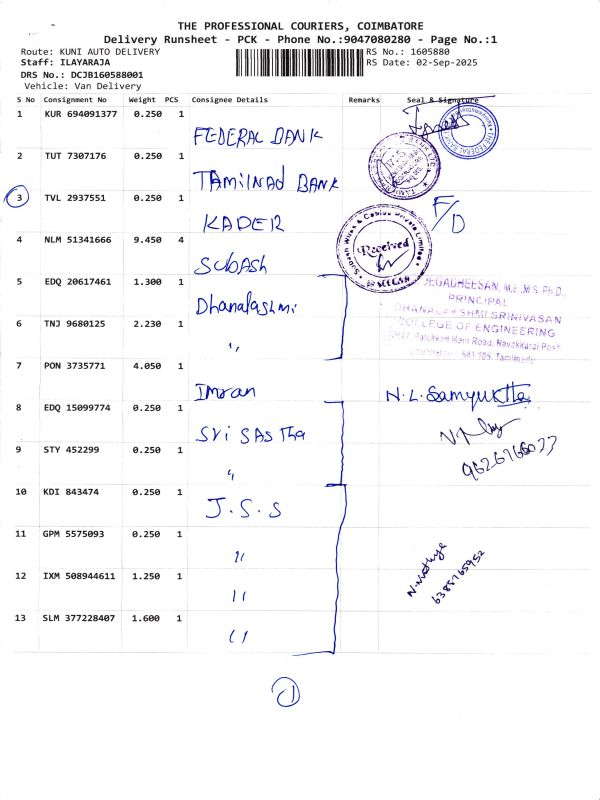 THE PROFESSIONAL COURIERS, COIMBATORE
Delivery Runsheet - PCK - Phone No.:9047080280 - Page No.:1
Route: KUNI AUTO DELIVERY
RS No.: 1605880
Staff: ILAYARAJA
RS Date: 02-Sep-2025
DRS No.: DCJB160588001
Vehicle: Van Delivery
S No Consignment No Weight PCS Consignee Details Remarks Seal & Signature
1 KUR 694091377 0.250 1
FEDERAL BANK
2 TUT 7307176 0.250 1
TAMILNAD BANK
3 TVL 2937551 0.250 1
KADER
F/D
4 NLM 51341666 9.450 4
SUBASH
Subash Wires & Cables Private Limited
Received
5 EDQ 20617461 1.300 1
Dhanalashmi
JEGADHEESAN, M.E.,M.S.,Ph.D.,
PRINCIPAL
DHANALAKSHMI SRINIVASAN
COLLEGE OF ENGINEERING
Main Road, Navakkarai Post
641 105, Tamilnadu
6 TNJ 9680125 2.230 1
"
7 PON 3735771 4.050 1
Imran
N.L. Samyuktha
8 EDQ 15099774 0.250 1
Sri SASTha
9 STY 452299 0.250 1
"
10 KDI 843474 0.250 1
J.S.S
11 GPM 5575093 0.250 1
"
12 IXM 508944611 1.250 1
"
13 SLM 377228407 1.600 1
"
1